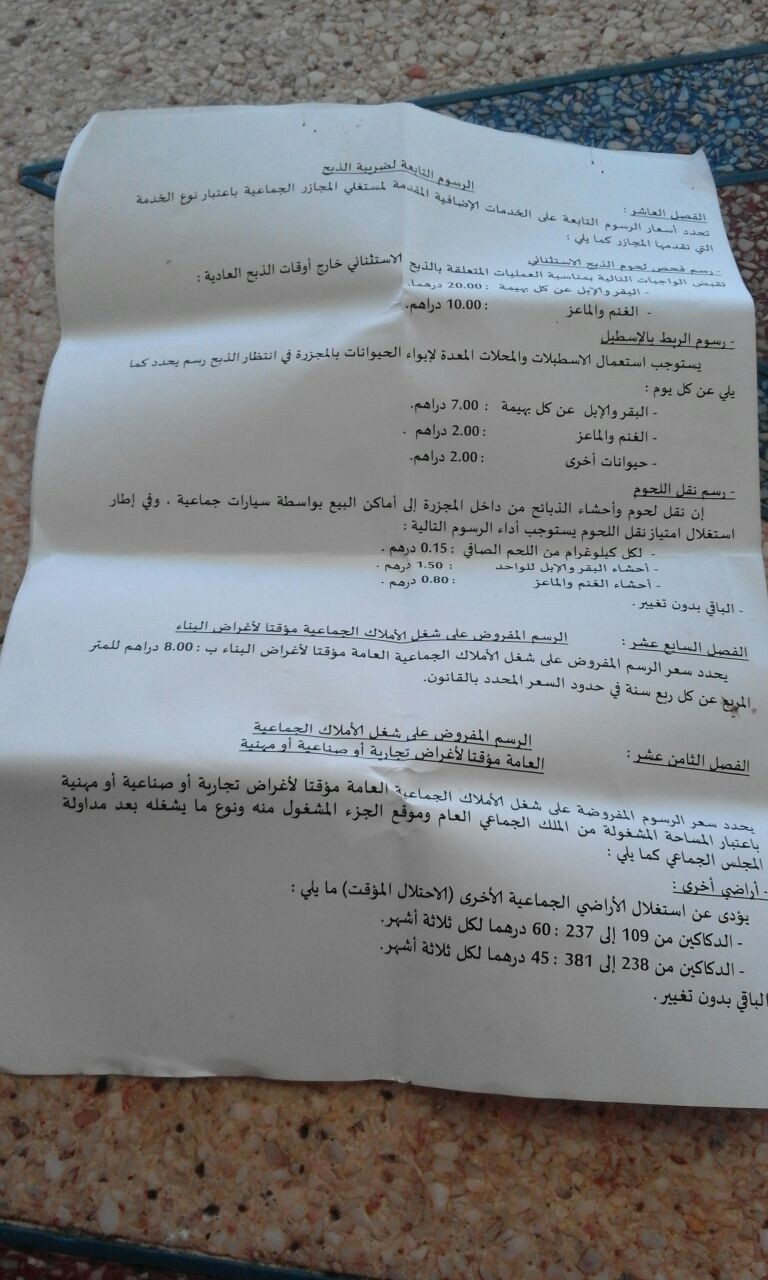 الرسوم التابعة لضريبة الذبح
الفصل العاشر :
تحدد أسعار الرسوم التابعة على الخدمات الإضافية المقدمة لمستغلي المجازر الجماعية باعتبار نوع الخدمة
التي تقدمها المجازر كما يلي :
- رسم فحص لحوم الذبح الاستثنائي
تقبض الواجبات التالية بمناسبة العمليات المتعلقة بالذبح الاستثنائي خارج أوقات الذبح العادية :
- البقر والإبل عن كل بهيمة : 20.00 درهما.
- الغنم والماعز : 10.00 دراهم.
- رسوم الربط بالإسطبل
يستوجب استعمال الاسطبلات والمحلات المعدة لإيواء الحيوانات بالمجزرة في انتظار الذبح رسم يحدد كما
يلي عن كل يوم :
- البقر والإبل عن كل بهيمة : 7.00 دراهم.
- الغنم والماعز : 2.00 دراهم .
- حيوانات أخرى : 2.00 دراهم.
- رسم نقل اللحوم
إن نقل لحوم وأحشاء الذبائح من داخل المجزرة إلى أماكن البيع بواسطة سيارات جماعية . وفي إطار
استغلال امتياز نقل اللحوم يستوجب أداء الرسوم التالية :
- لكل كيلوغرام من اللحم الصافي : 0.15 درهم .
- أحشاء البقر والإبل للواحد : 1.50 درهم .
- أحشاء الغنم والماعز : 0.80 درهم .
- الباقي بدون تغيير .
الفصل السابع عشر : الرسم المفروض على شغل الأملاك الجماعية مؤقتا لأغراض البناء
يحدد سعر الرسم المفروض على شغل الأملاك الجماعية العامة مؤقتا لأغراض البناء ب : 8.00 دراهم للمتر
المربع عن كل ربع سنة في حدود السعر المحدد بالقانون.
الفصل الثامن عشر : الرسم المفروض على شغل الأملاك الجماعية
العامة مؤقتا لأغراض تجارية أو صناعية أو مهنية
يحدد سعر الرسوم المفروضة على شغل الأملاك الجماعية العامة مؤقتا لأغراض تجارية أو صناعية أو مهنية
باعتبار المساحة المشغولة من الملك الجماعي العام وموقع الجزء المشغول منه ونوع ما يشغله بعد مداولة
المجلس الجماعي كما يلي :
- أراضي أخرى :
يؤدى عن استغلال الأراضي الجماعية الأخرى (الاحتلال المؤقت) ما يلي :
- الدكاكين من 109 إلى 237 : 60 درهما لكل ثلاثة أشهر.
- الدكاكين من 238 إلى 381 : 45 درهما لكل ثلاثة أشهر.
الباقي بدون تغيير .